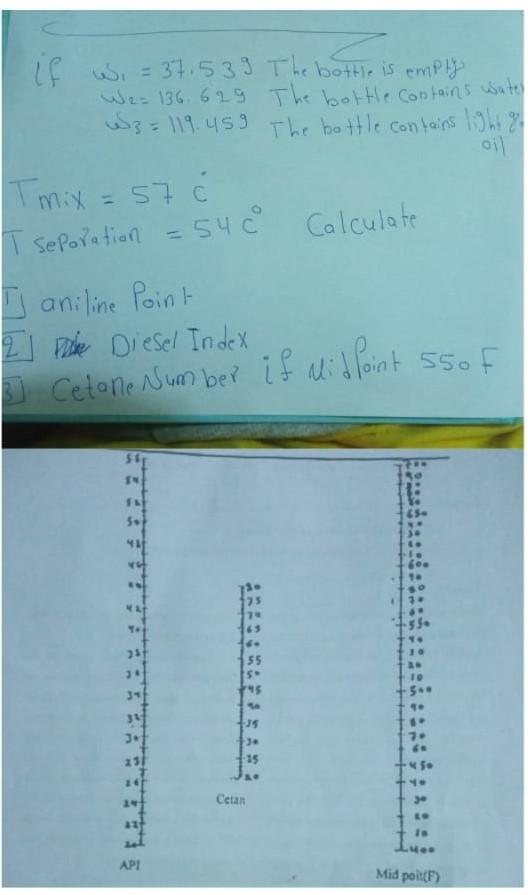 if W1 = 37.539 The bottle is empty
W2= 136.629 The bottle contains water
W3 = 119.459 The bottle contains light
oil
Tmix = 57 C°
T separation = 54 C° Calculate
1] aniline Point
2] Diesel Index
3] Cetane Number if Midpoint 550 F
56
54
52
50
42
40
34
32
30
26
24
22
20
API
80
75
70
65
60
55
50
45
40
35
30
25
20
Cetan
650
600
550
500
450
40
30
20
10
400
Mid poit(F)